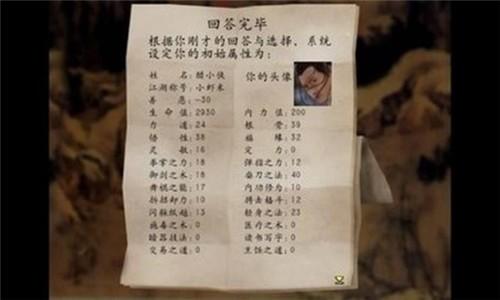 回答完毕
根据你刚才的回答与选择，系统
设定你的初始属性为：
姓 名：醋小侠 你的头像
江湖称号：小虾米
善 恶：-30
生 命 值：2930 内 力 值：200
力 道：24 根 骨：39
悟 性：38 福 缘：32
灵 敏：16 定 力：0
拳掌之力：18 弹指之力：12
御剑之术：18 磨刀之法：40
舞棍之能：17 内功修为：10
拆招卸力：10 搏击格斗：12
闪躲纵越：13 轻身之法：23
施毒之术：0 医疗之术：0
暗器技法：0 读书写字：0
交易之道：0 烹饪之道：0